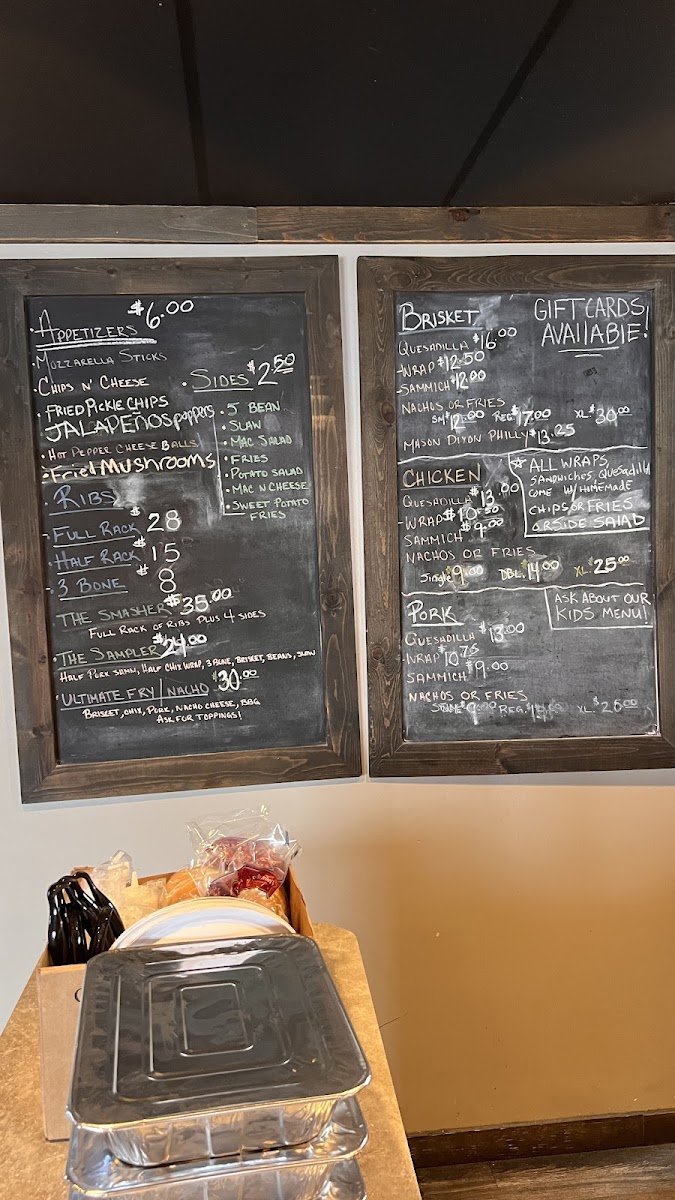 $6.00
• APPETIZERS
• MOZZARELLA STICKS
• CHIPS N' CHEESE
• FRIED PICKLE CHIPS
JALAPEÑOS poppers
• HOT PEPPER CHEESE BALLS
• Fried Mushrooms
• SIDES $2.50
• 5 BEAN
• SLAW
• MAC SALAD
• FRIES
• POTATO SALAD
• MAC N CHEESE
• SWEET POTATO
FRIES
• RIBS
- FULL RACK $28
- HALF RACK $15
- 3 BONE $8
• THE SMASHER $35.00
FULL RACK OF RIBS PLUS 4 SIDES
• THE SAMPLER $24.00
HALF PORK SMMN, HALF CHIX WRAP, 3 BONE, BRISKET, BEANS, SLAW
• ULTIMATE FRY / NACHO $30.00
BRISKET, CHIX, PORK, NACHO CHEESE, BBQ
ASK FOR TOPPINGS!
BRISKET
QUESADILLA $16.00
- WRAP $12.50
- SAMMICH $12.00
NACHOS OR FRIES
SM $12.00 REG. $17.00 XL $30.00
MASON DIXON PHILLY $13.25
GIFT CARDS
AVAILABLE!
CHICKEN
QUESADILLA $13.00
- WRAP $10.50
SAMMICH $9.00
NACHOS OR FRIES
Single $9.00 DBL. $14.00 XL. $25.00
☆ ALL WRAPS
SANDWICHES, QUESADILLA
COME W/ HOMEMADE
CHIPS OR FRIES
OR SIDE SALAD
PORK
QUESADILLA $13.00
- WRAP $10.75
SAMMICH $9.00
NACHOS OR FRIES
$9.00 REG. XL. $25.00
ASK ABOUT OUR
KIDS MENU!